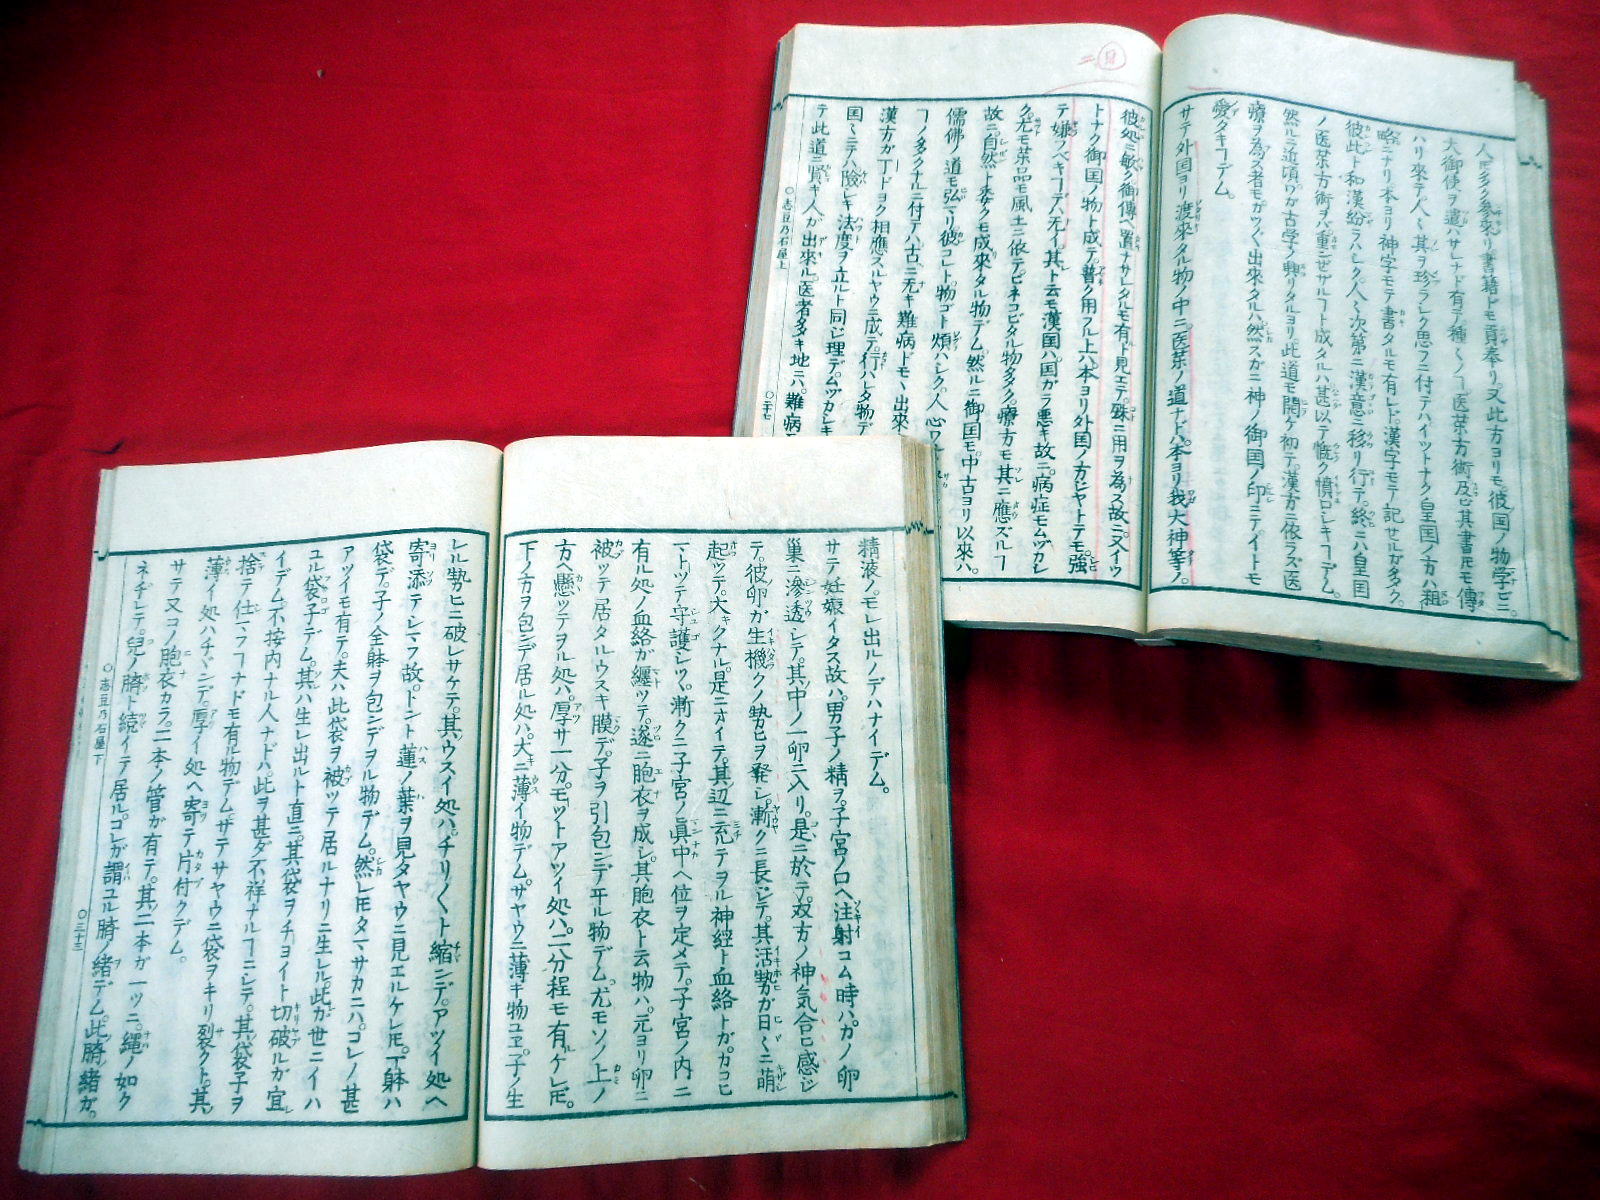 人民多ク参來リ書籍ドモ貢奉リ又此方ヨリモ。彼国ノ物学ビニ。
大御使ヲ遣ハサレナド有テ種々ノヿ。医薬方術及以其書𪜈モ傳
ハリ來テ人々其ヲ珍ラシク思フニ付テハイツトナク皇国ノ方ハ粗
略ニナリ本ヨリ神字モテ書タルモ有レド。漢字モテ記セルガ多ク。
彼此ト和漢紛ラハシク。人々次第ニ漢意ニ移リ行テ終ニハ皇国
ノ医薬方術ヲバ。重ンゼザルヿト成タルハ甚以テ慨ク憤ロシキヿデム。
然ルニ近頃ワガ古学ノ興リタルヨリ。此道モ開ケ初テ。漢方ニ依ラズ医
療ヲ為ス者モガツ〱出來タルハ然スガニ神ノ御国ノ印ニテイトモ
愛タキヿデム。
サテ外国ヨリ渡來タル物ノ中ニ医薬ノ道ナドハ。本ヨリ我大神等ノ。
彼処ニ敏ク御傳ヘ置ナサレタルモ有ト見エテ。殊ニ用ヲ為ス故ニ。又イツ
トナク御国ノ物ト成テ。普ク用フル上ハ。本ヨリ外国ノ方ジヤトテモ。強
テ嫌フベキヿデハ无イ其ト云モ漢国ハ。国ガラ悪キ故ニ。病症モムヅカシ
ク。尤モ薬品モ風土ニ依テ。ヒネコビタル物多ク。療方モ其ニ應ズルヿ
故ニ。自然ト委クモ成來タル物デム。然ルニ御国モ。中古ヨリ以來ハ。
儒佛ノ道モ弘マリ彼コレト。物ゴト煩ハシク。人心
ヿノ多クナルニ付テハ古ニ无キ難病ドモヽ出來
漢方ガ丁ドヨク相應スルヤウニ成テ。行ハレタ物デ
国々ニテハ險シキ法度ヲ立ルト同ジ理デ。ムヅカシキ
テ此道ニ賢キ人ガ出來ル。医者多キ地ニハ。難病
○志豆乃石屋上
○二十七
二 目
精液ノモレ出ルノデハナイデム。
サテ妊娠イタス故ハ。男子ノ精ヲ。子宮ノ口ヘ注射コム時ハ。カノ卵
巣ニ滲透シテ。其中ノ一卵ニ入リ。是ニ於テ。双方ノ神気合ヒ感ジ
テ。彼卵ガ生機クノ勢ヒヲ発シ。漸クニ長ジテ。其活勢ガ日々ニ萌
起ツテ。大キクナル。是ニオイテ。其辺ニ充テヲル神経ト血絡トガ。カコヒ
マトツテ守護シツヽ漸クニ子宮ノ眞中ヘ位ヲ定メテ。子宮ノ内ニ
有ル処ノ血絡ガ纏ツテ。遂ニ胞衣ヲ成シ。其胞衣ト云物ハ。元ヨリ卵ニ
被ツテ居タルウスキ膜デ。子ヲ引包ンデ居ル物デム。尤モソノ上ノ
方ヘ懸ツテヲル処ハ。厚サ一分。モツトアツイ処ハ。二分程モ有ルケレ𪜈。
下ノ方ヲ包ンデ居ル処ハ。大ニ薄イ物デム。サヤウニ薄キ物ユヱ。子ノ生
レル勢ヒニ破レサケテ。其ウスイ処ハ。チリ〱ト縮ンデ。アツイ処ヘ
寄添テシマフ故。ドント蓮ノ葉ヲ見タヤウニ見エルケレ𪜈。一躰ハ
袋デ。子ノ全躰ヲ包ンデヲル物デム。然レ𪜈タマサカニハ。ゴレノ甚
アツイモ有テ。夫ハ此袋ヲ被ツテ居ルナリニ生レル。此ガ世ニイハ
ユル袋子デム。其ハ生レ出ルト直ニ。其袋ヲチヨイト切破ルガ宜
イデム。不按内ナル人ナドハ。此ヲ甚ダ不祥ナルヿニシテ。其袋子ヲ
捨テ仕マフヿナドモ有ル物デム。サテサヤウニ袋ヲキリ裂クト。其
薄イ処ハチヾンデ。厚イ処ヘ寄テ片付クデム。
サテ又コノ胞衣カラ。二本ノ管ガ有テ。其二本ガ一ツニ。縄ノ如ク
ネヂレテ。兒ノ臍ト続イテ居ル。コレガ謂ユル臍ノ緒デム。此臍緒ガ。
○志豆乃石屋下
○三十三